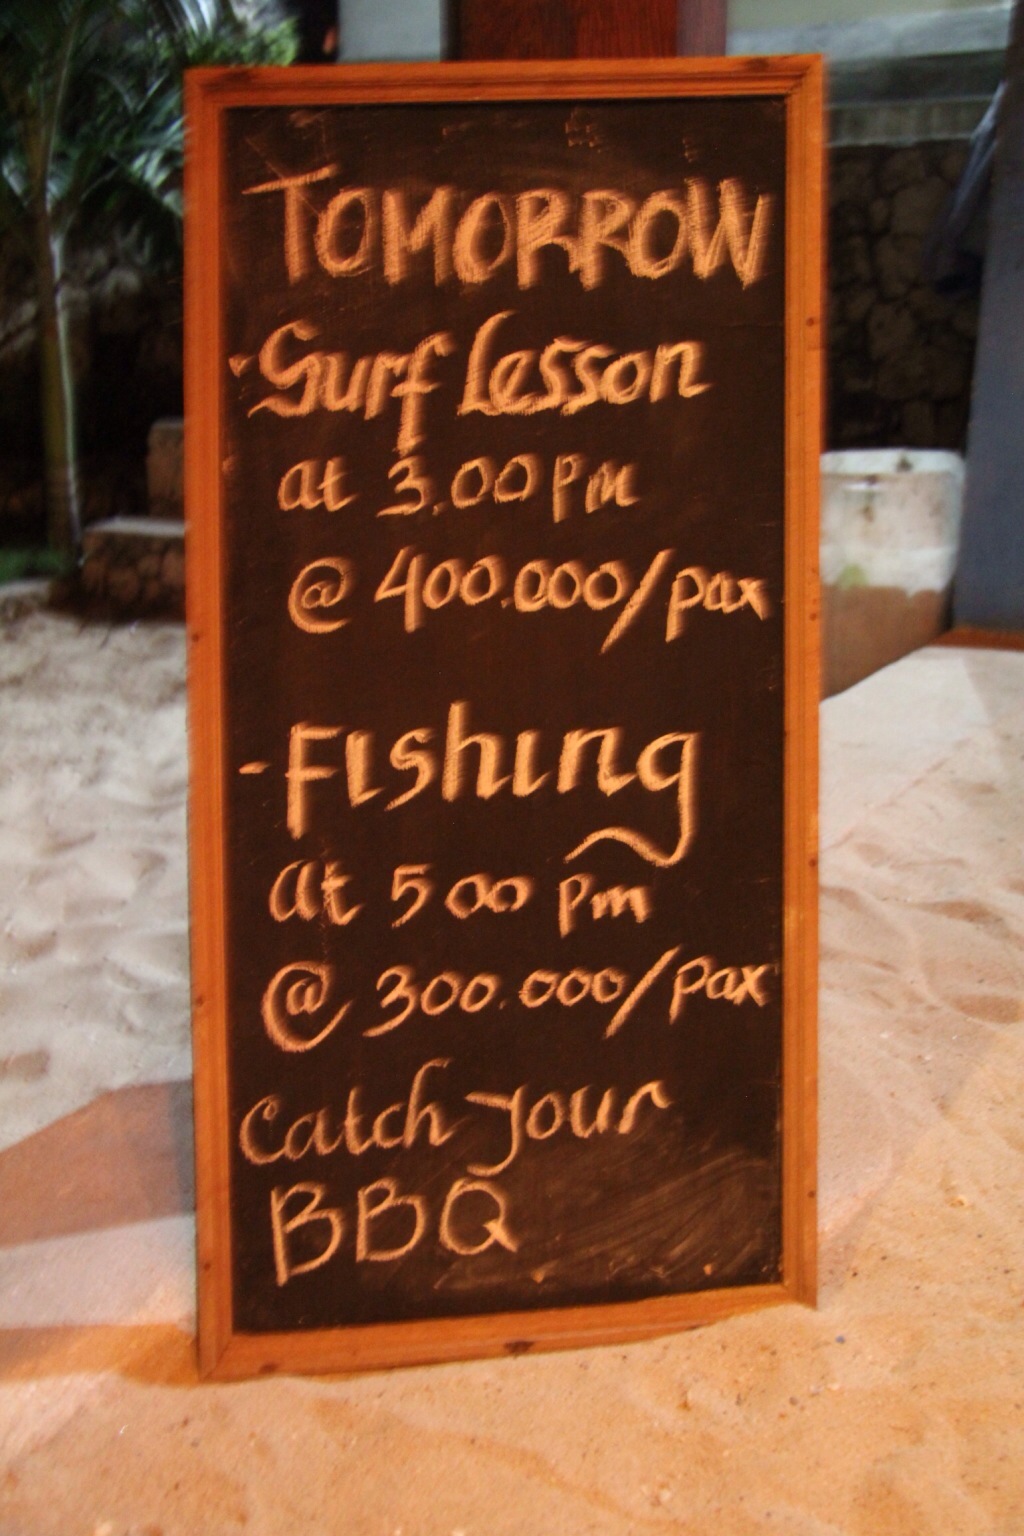 TOMORROW
- Surf Lesson
at 3.00 pm
@ 400.000/pax
- Fishing
at 500 pm
@ 300.000/pax
Catch your
BBQ